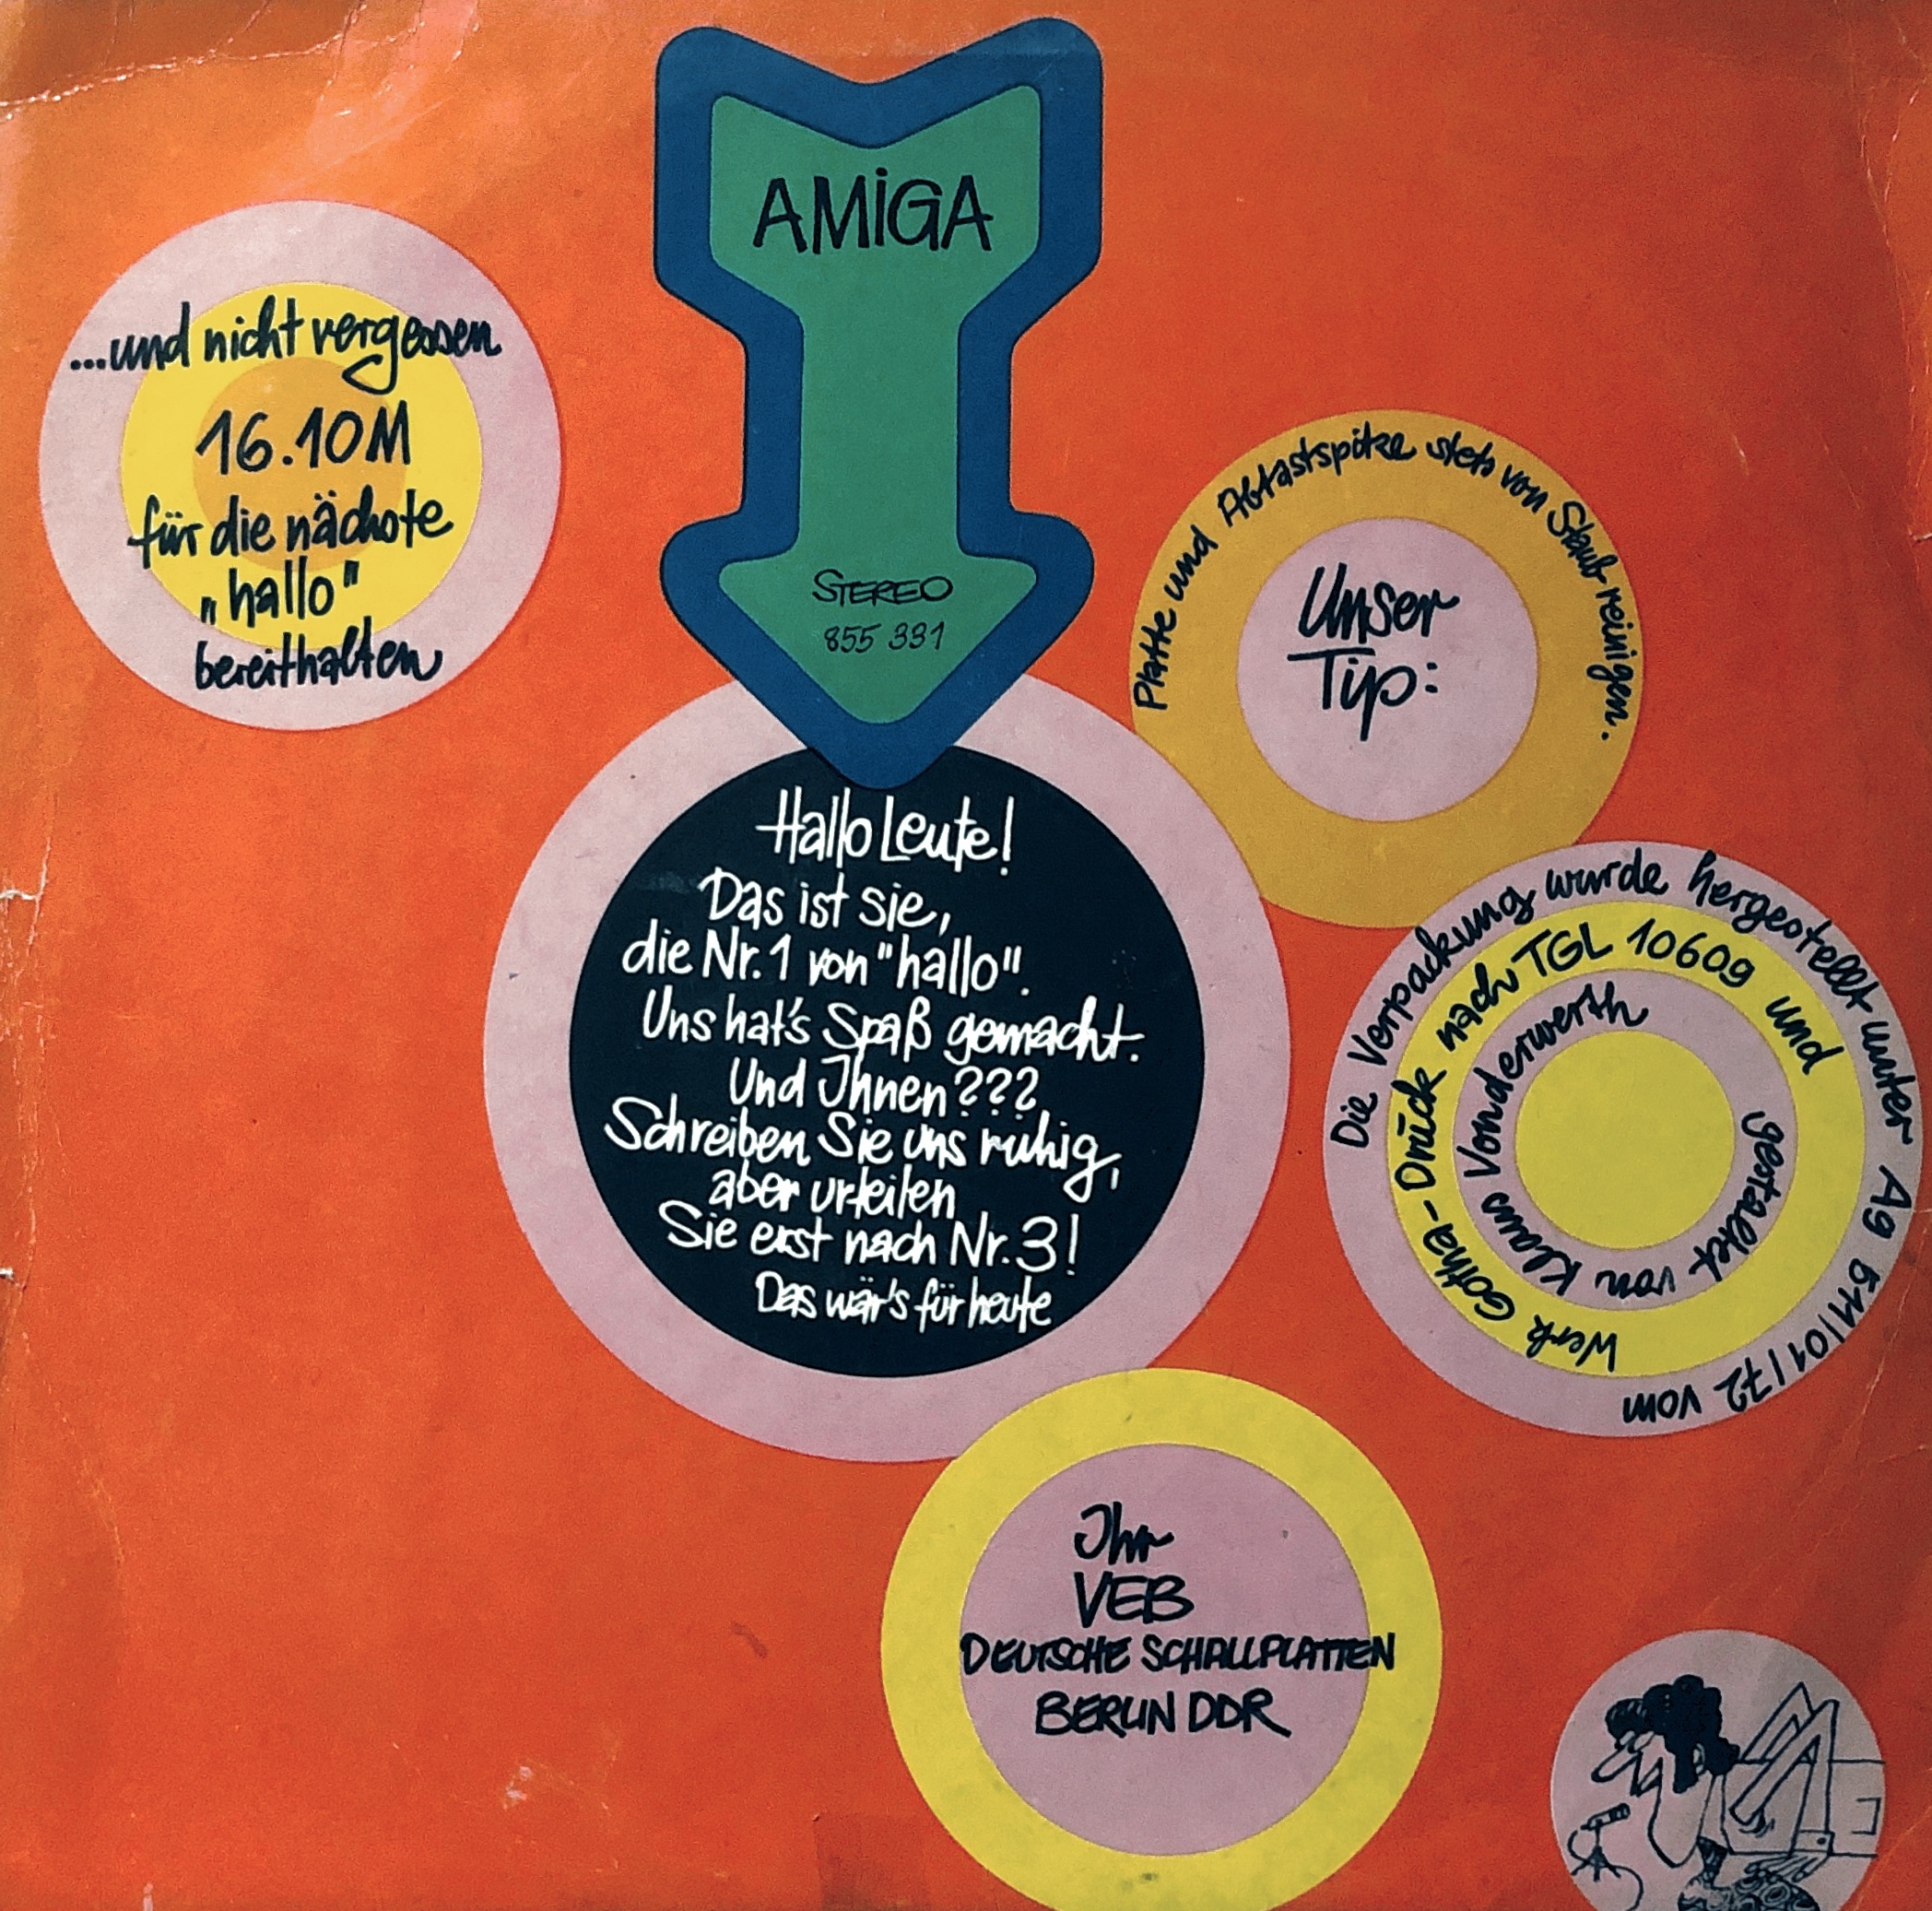 AMiGA
STEREO
855 331
...und nicht vergessen
16.10M
für die nächste
„hallo"
bereithalten
Platte und Abtastspitze stets von Staub reinigen.
Unser
Tip:
Hallo Leute!
Das ist sie,
die Nr. 1 von "hallo".
Uns hat's Spaß gemacht.
Und Ihnen???
Schreiben Sie uns ruhig,
aber urteilen
Sie erst nach Nr. 3!
Das wär's für heute
Die Verpackung wurde hergestellt unter Ag 511/01/72 vom
Werk Gotha-Druck nach TGL 10609 und
gestaltet von Klaus Vonderwerth
Ihr
VEB
DEUTSCHE SCHALLPLATTEN
BERLIN DDR